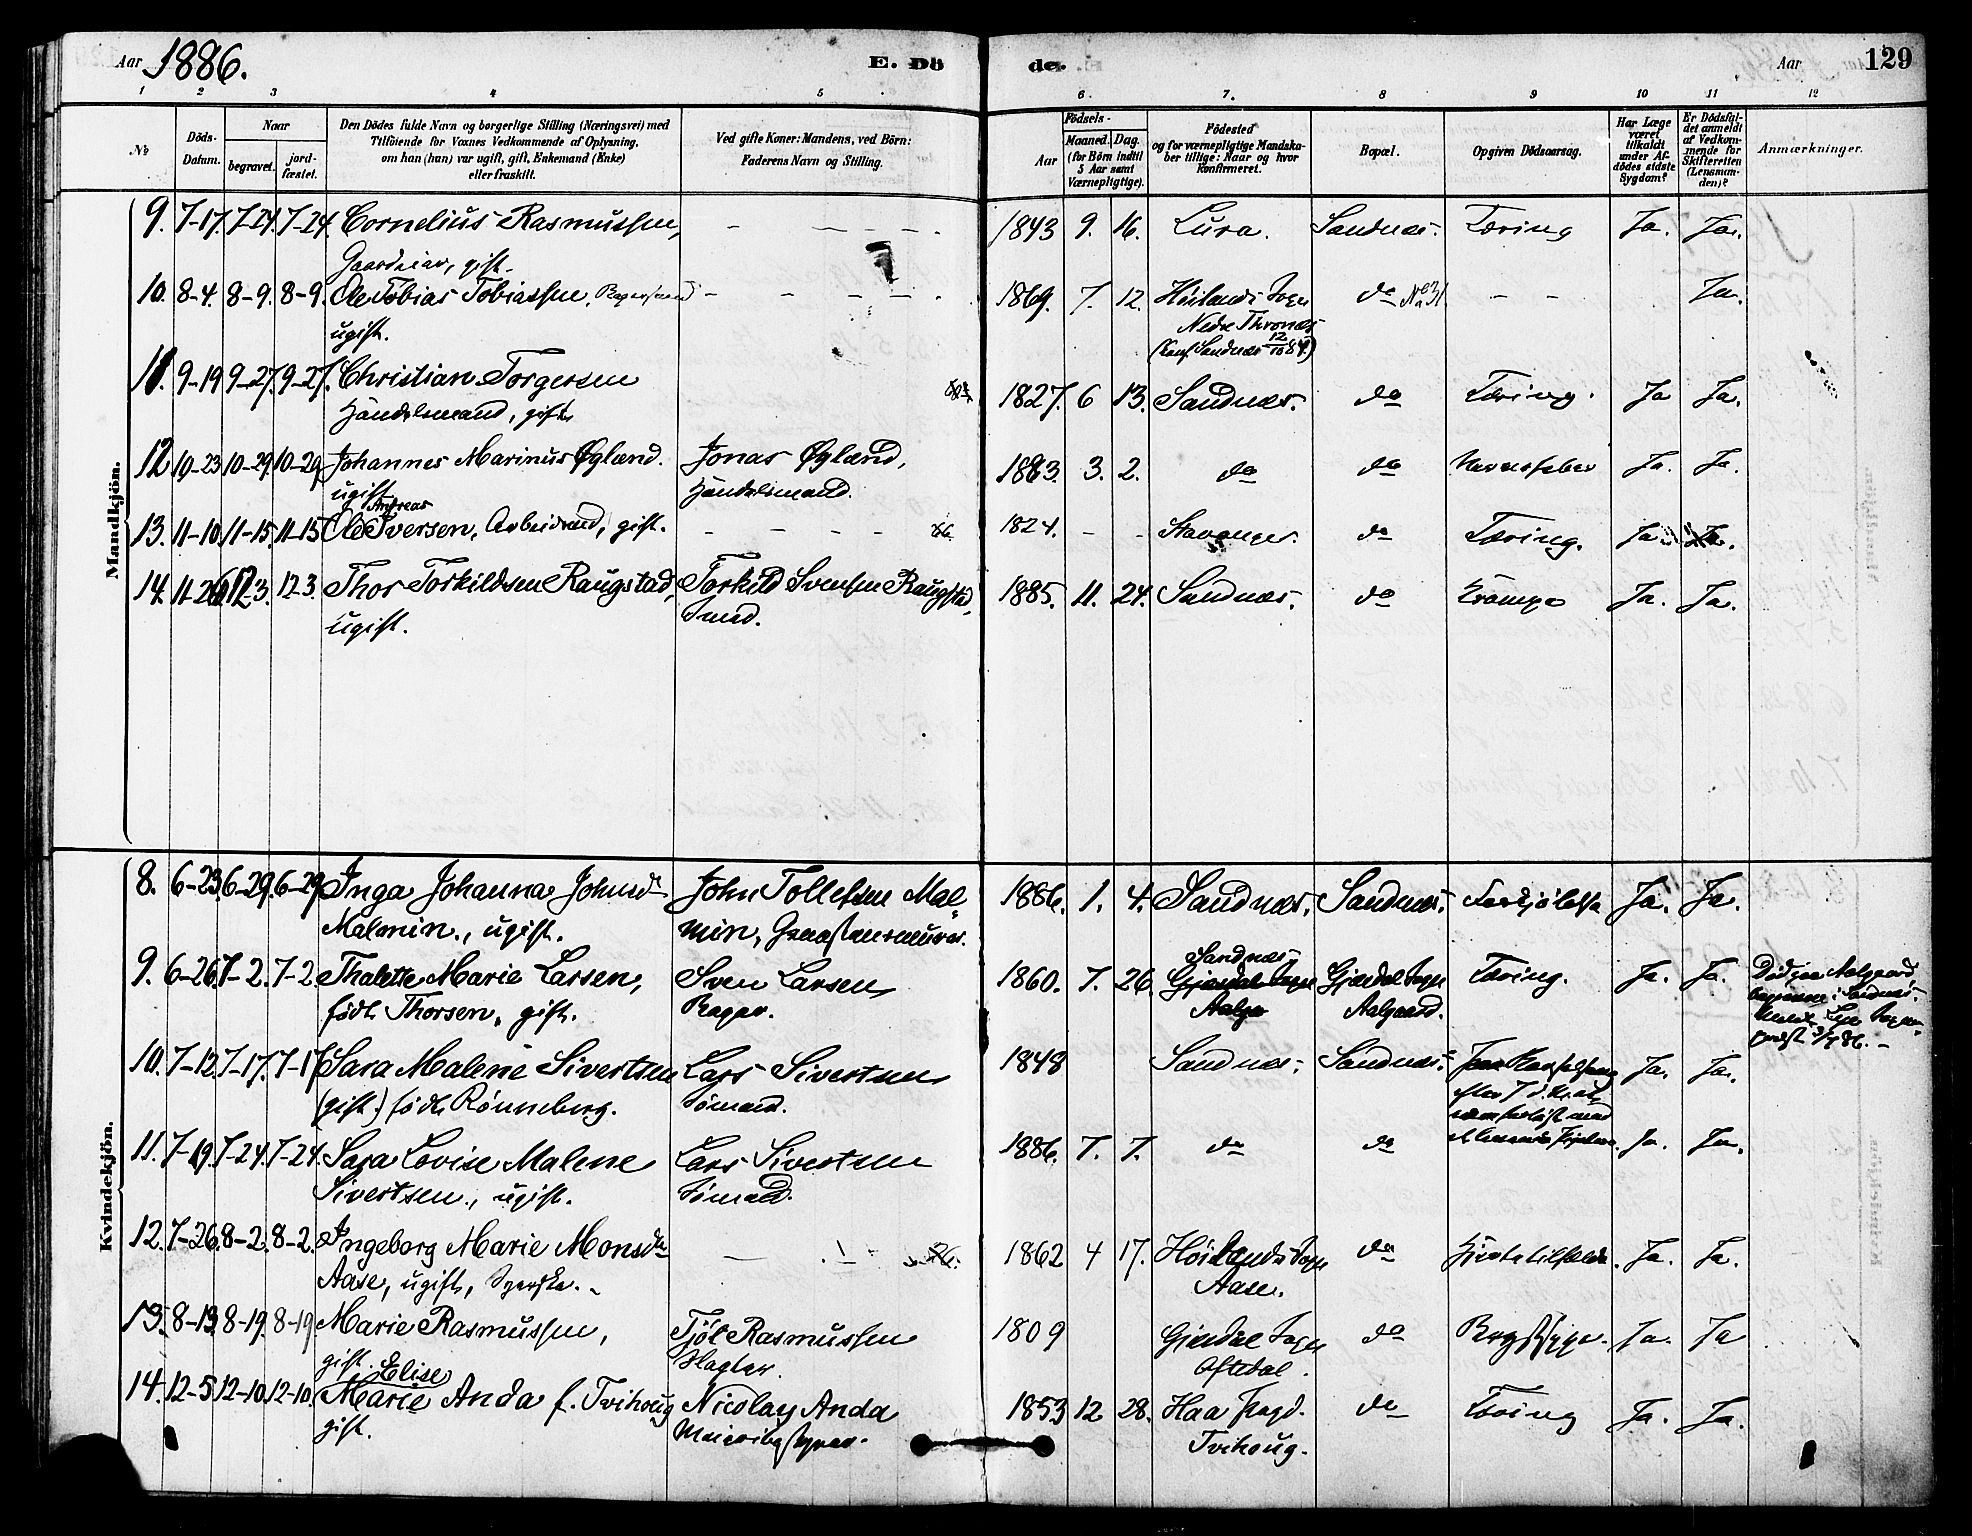 Aar 1886. E. Dö de. Aar 129
1 2 3 4 5 6. 7. 8 9 10 11 12
No Döds-Datum. Naar begravet. jordfæstet. Den Dödes fulde Navn og borgerlige Stilling (Næringsvei) med Tilföiende for Voxnes Vedkommende af Oplysning, om han (hun) var ugift, gift, Enkemand (Enke) eller fraskilt. Ved gifte Koner: Mandens, ved Börn: Faderens Navn og Stilling. Födsels- Aar Maaned. Dag. (for Börn indtil 5 Aar samt Værnepligtige). Födested og for værnepligtige Mandskaber tillige: Naar og hvor konfirmeret. Bopæl. Opgiven Dödsaarsag. Har Læge været tilkaldt under Afdödes sidste Sygdom? Er Dödsfaldet anmeldt af Vedkommende for Skifteretten (Lensmanden)? Anmærkninger.
Mandkjön.
9. 7-17. 7-24. 7-24. Cornelius Rasmussen, - - - - - 1843 9. 16. Lura. Sandnæs. Tæring Ja. Ja.
gift.
10. 8-4. 8-9. 8-9. Ole Tobias Tobiassen, - - - - 1869. 7. 12. Höilands Sogn do No 31 - - Ja.
ugift. Nedre Thronæs
(Konf. Sandnæs 12/10 84.)
11. 9-19 9-27. 9-27. Christian Torgersen 1827. 6 13. Sandnæs. do Tæring. Ja Ja.
Handelsmand, gift.
12 10-23 10-29. 10-29 Johannes Marinus Øglænd. Jonas Øglænd, 1883. 3. 2. do do Ja. Ja.
ugift Handelsmand.
Andreas
13. 11-10. 11-15. 11-15 Ole Iversen, Arbeidsmd, gift. - - - 86. 1824. - - Stavanger. do Tæring. Ja. Ja.
14. 11-26 12 3. 12 3. Thor Torkildsen Raugstad, Torkild Svensen Raugstad, 1885. 11. 24. Sandnæs. do Krampe Ja. Ja.
ugift. Smed.
Kvindekjön.
8. 6-23. 6-29. 6-29 Inga Johanna Johnsd. John Tollefsen Mal- 1886. 1. 4. Sandnæs. Sandnæs. Forkjølelse Ja. Ja.
Malmin., ugift. min,
Sandnæs.
9. 6-26. 7-2. 7-2. Thalette Marie Larsen, Sven Larsen 1860. 7. 26. Gjæsdal Sogn Gjæsdal Sogn Tæring. Ja. Ja. Död paa Aalgaard,
födt Thorsen, gift. Bager. Aalgr Aalgaard.
10. 7-12. 7-17. 7-17 Sara Malene Sivertsen Lars Sivertsen 1848 Sandnæs. Sandnæs. Ja. Ja.
(gift.) födt Rönneberg. Sömand.
11. 7-19. 7-24. 7-24. Sara Lovise Malene Lars Sivertsen 1886. 7. 7. do do Ja. Ja.
Sivertsen., ugift. Sömand.
12. 7-26. 8-2. 8-2. Ingeborg Marie Monsdr - - - 86. 1862 4 17. Höilands Sogn do Ja. Ja.
Aase, ugift, Syerske. Aase.
13. 8-13. 8-19. 8-19. Marie Rasmussen, Tjöl Rasmussen 1809 Gjæsdal Sogn do Brystsyge. Ja. Ja
gift. Slagter. Oftedal.
Elise
14. 12-5. 12-10. 12-10. Marie Anda f. Tvihoug Nicolay Anda 1853 12 28. Haa Præstegd. do Tæring Ja. Ja.
gift. Meieribestyrer. Tvihoug.